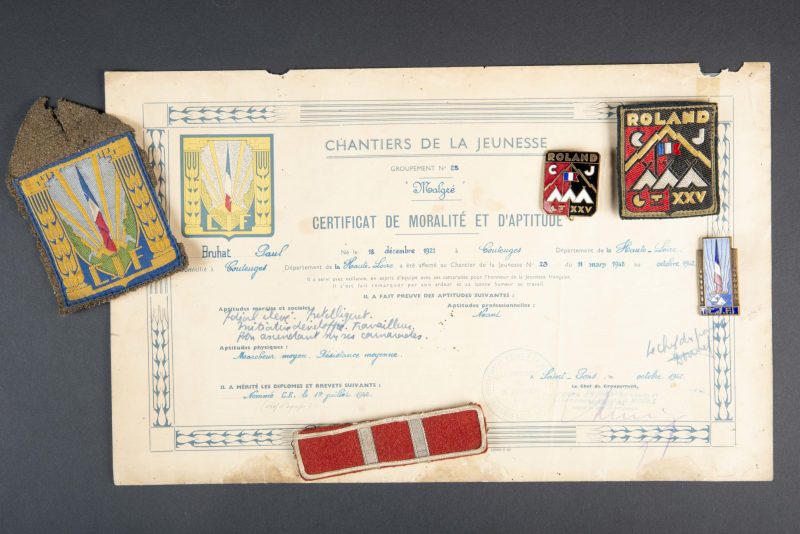 CHANTIERS DE LA JEUNESSE
GROUPEMENT N° 25
"Malgré"
CERTIFICAT DE MORALITÉ ET D'APTITUDE
Bruhat Paul Né le 18 décembre 1921 à Couteuges Département de la Haute-Loire.
domicilié à Couteuges Département de la Haute-Loire a été affecté au Chantier de la Jeunesse N° 25 du 11 mars 1942 au octobre 1942
Il a servi avec vaillance, en esprit d'équipe avec ses camarades pour l'honneur de la jeunesse française.
Il s'est fait remarquer par son ardeur et sa bonne humeur au travail.
IL A FAIT PREUVE DES APTITUDES SUIVANTES :
Aptitudes morales et sociales
Aptitudes professionnelles :
Moral élevé. Intelligent.
Néant
Initiative développée. Travailleur.
Bon ascendant sur ses camarades.
Aptitudes physiques :
Marcheur moyen. Résistance moyenne.
à Saint-Pons le octobre 1942
IL A MÉRITÉ LES DIPLOMES ET BREVETS SUIVANTS :
Le Chef du Groupement,
Nommé C.E. le 1er juillet 1942
Le Chef du
ROLAND
C J
G T XXV
ROLAND
C J
G T XXV